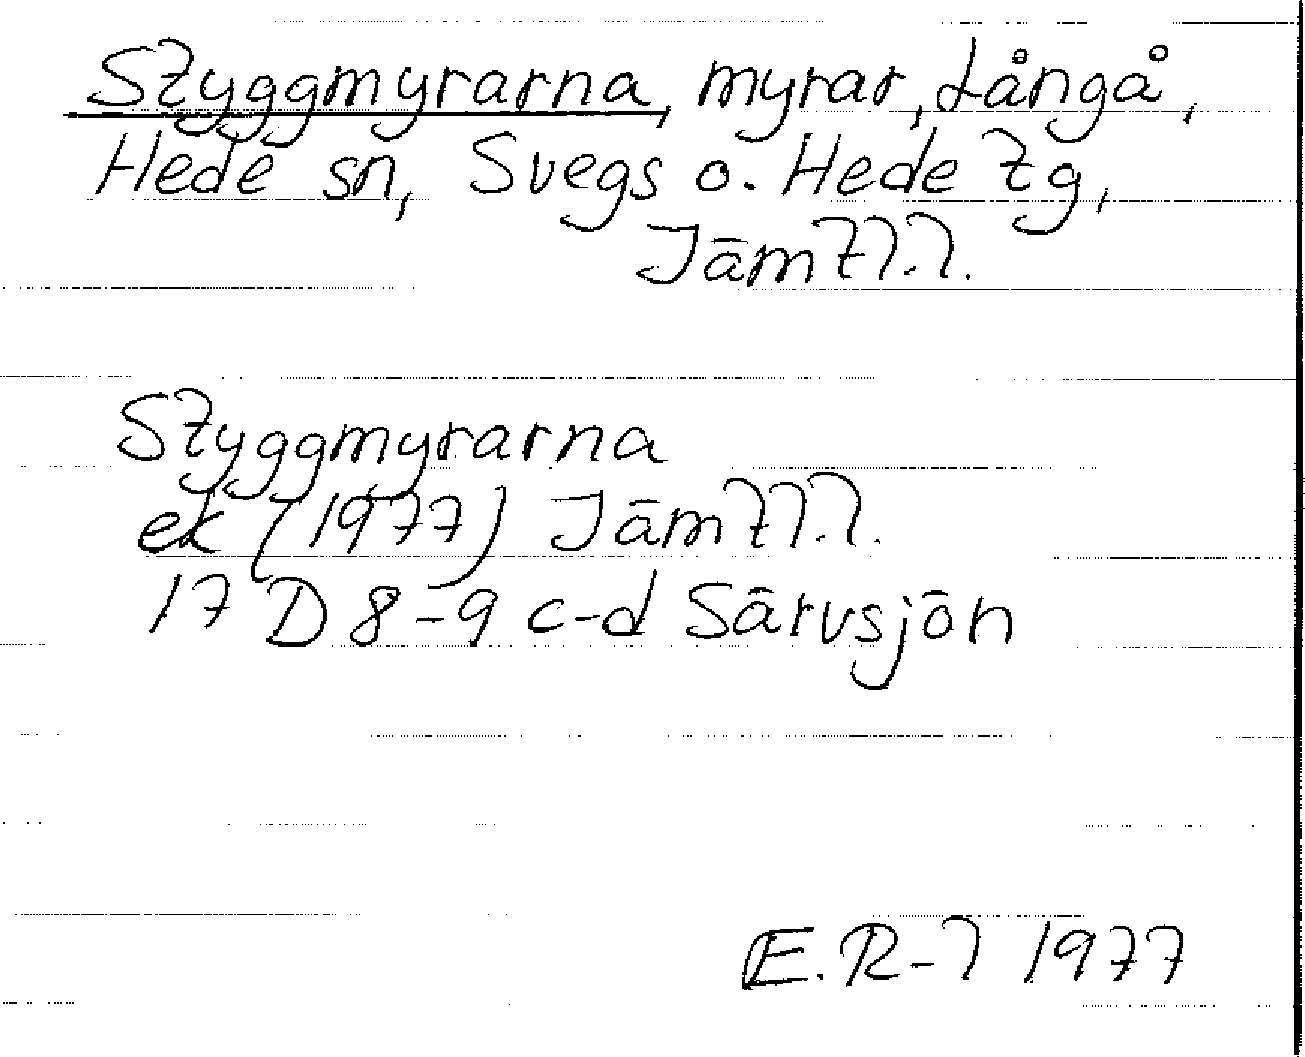 Styggmyrarna, myrar, Långå,
Hede sn, Svegs o. Hede tg,
Jämtl. l.
Styggmyrarna
ek (1977) Jämtl. l.
17 D 8-9 c-d Särvsjön
E. R-l 1977